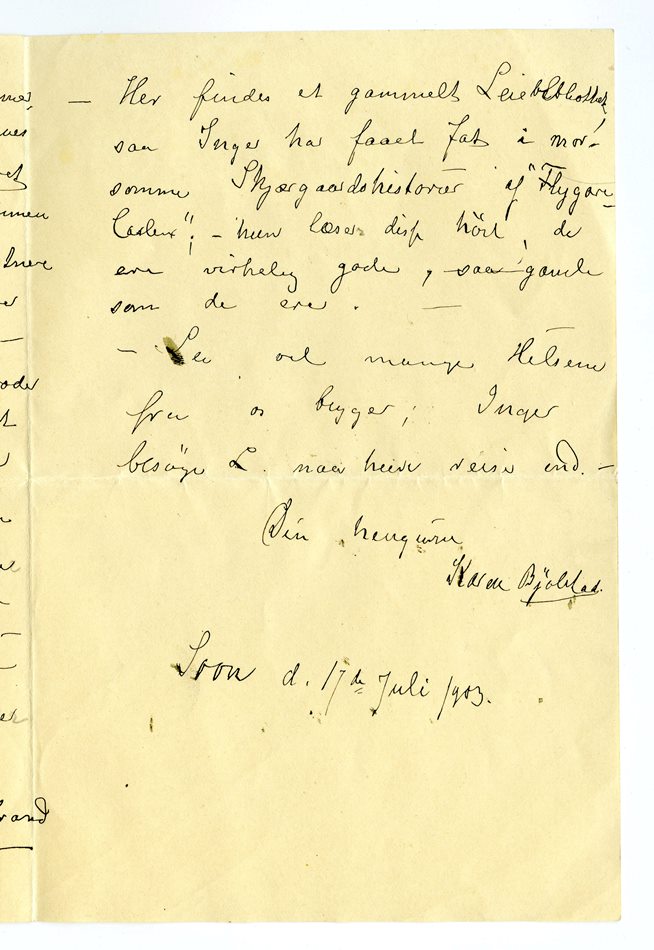 — Her findes et gammelt Leiebibliothek,
saa Inger har faaet fat i mor-
somme Skjærgaardshistorier af "Flygare-
Carlén"; – hun læser disse höit, de
ere virkelig gode, saa gamle
som de ere. —
– Lev vel mange Hilsener
fra os begge; Inger
besöge L. naar reise ind. –
Din hengivne
Karen Bjölstad.
Soon d. 17de Juli 1903.
rand